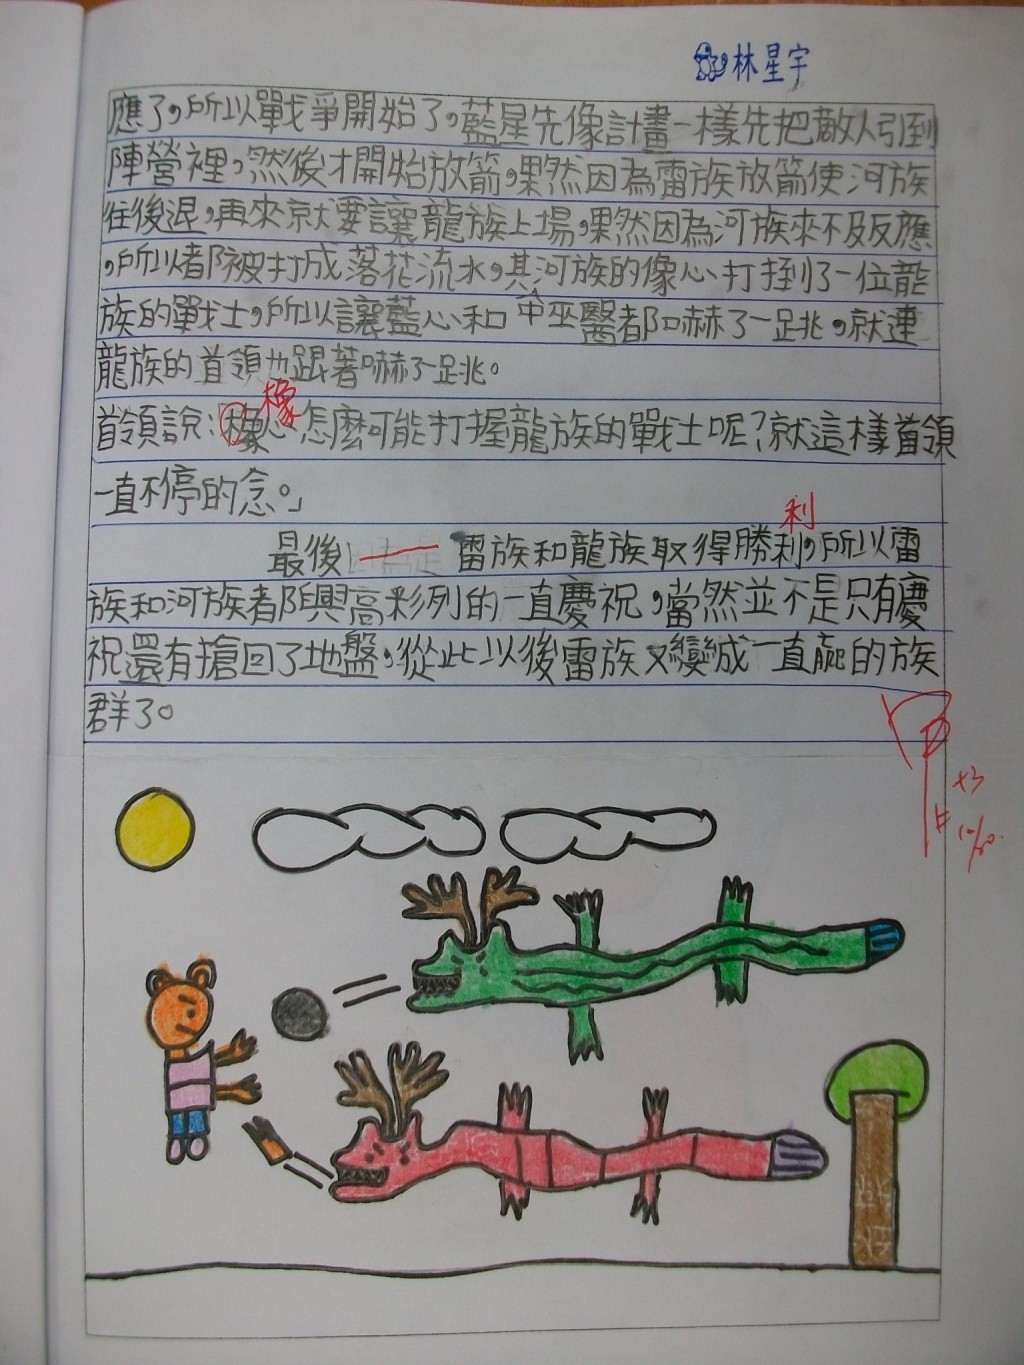 林星宇
應了，所以戰爭開始了，藍星先像計畫一樣先把敵人引到
陣營裡，然後才開始放箭，果然因為雷族放箭使河族
往後退，再來就要讓龍族上場，果然因為河族來不及反應
，所以都被打成落花流水，其河族的像心打掛到了一位龍
族的戰士，所以讓藍心和中巫醫都嚇了一跳，就連
龍族的首領也跟著嚇了一跳。
橡
首領說：「橡心怎麼可能打握龍族的戰士呢？就這樣首領
一直不停的念。」
利
最後 雷族和龍族取得勝利，所以雷
族和河族都興高彩列的一直慶祝，當然並不是只有慶
祝還有搶回了地盤，從此以後雷族又變成一直贏的族
群了。
甲
+3